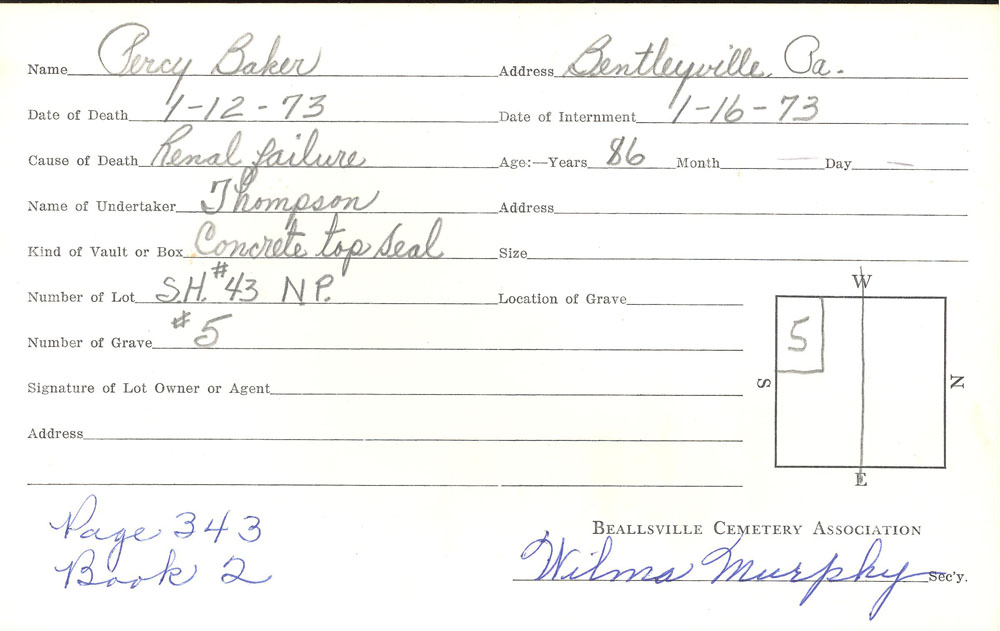 Name Percy Baker Address Bentleyville, Pa.
Date of Death 1-12-73 Date of Internment 1-16-73
Cause of Death Renal failure Age:—Years 86 Month — Day —
Name of Undertaker Thompson Address
Kind of Vault or Box Concrete top seal Size
Number of Lot S.H. #43 N.P. Location of Grave
Number of Grave #5
Signature of Lot Owner or Agent
Address
W
5
S N
E
Page 343
Book 2
BEALLSVILLE CEMETERY ASSOCIATION
Wilma Murphy Sec'y.